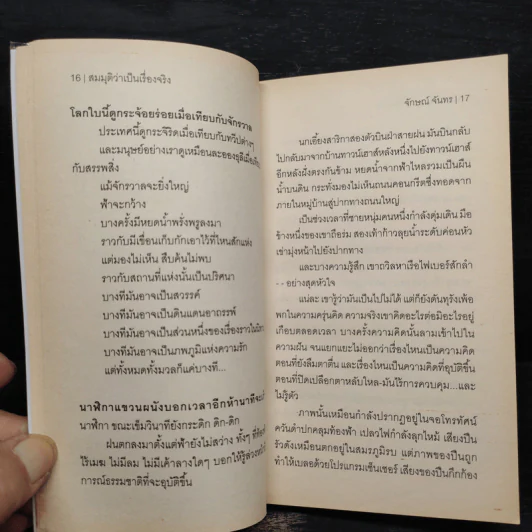 16 | สมมุติว่าเป็นเรื่องจริง
โลกใบนี้ดูกระจ้อยร่อยเมื่อเทียบกับจักรวาล
ประเทศนี้ดูกระจิริดเมื่อเทียบกับทวีปต่างๆ
และมนุษย์อย่างเราดูเหมือนละอองธุลีเมื่อ
กับสรรพสิ่ง
แม้จักรวาลจะยิ่งใหญ่
ฟ้าจะกว้าง
บางครั้งมีหยดน้ำพรั่งพรูลงมา
ราวกับมีเขื่อนเก็บกักเอาไว้ที่ไหนสักแห่ง
แต่มองไม่เห็น สืบค้นไม่พบ
ราวกับสถานที่แห่งนั้นเป็นปริศนา
บางทีมันอาจเป็นสวรรค์
บางทีมันอาจเป็นดินแดนอาถรรพ์
บางทีมันอาจเป็นส่วนหนึ่งของเรื่องราว
บางทีมันอาจเป็นภพภูมิแห่งความรัก
แต่ทั้งหมดทั้งมวลก็แค่บางที...
นาฬิกาแขวนผนังบอกเวลาอีกห้านาที
นาฬิกา ขณะเข็มวินาทียังกระดิก ติ๊ก-ติ๊ก
ฝนตกลงมาตั้งแต่ฟ้ายังไม่สว่าง ทั้งๆ ที่
ไร้เมฆ ไม่มีลม ไม่มีเค้าลางใดๆ บอกให้รู้
การณ์ธรรมชาติที่จะอุบัติขึ้น
จักษณ์ จันทร | 17
นกเอี้ยงสาริกาสองตัวบินฝ่าสายฝน มันบินกลับ
ไปกลับมาจากบ้านทาวน์เฮาส์หลังหนึ่งไปยังทาวน์เฮาส์
อีกหลังฝั่งตรงกันข้าม หยดน้ำจากฟ้าไหลรวมเป็นผืน
น้ำบนดิน กระทั่งมองไม่เห็นถนนคอนกรีตซึ่งทอดจาก
ภายในหมู่บ้านสู่ปากทางถนนใหญ่
เป็นช่วงเวลาที่ชายหนุ่มคนหนึ่งกำลังดุ่มเดิน มือ
ข้างหนึ่งของเขาถือร่ม สองเท้าก้าวลุยน้ำระดับค่อนหัว
เข่ามุ่งหน้าไปยังปากทาง
และบางความรู้สึก เขาถวิลหาเรือไฟเบอร์สักลำ
-- อย่างสุดหัวใจ
แน่ละ เขารู้ว่ามันเป็นไปไม่ได้ แต่ก็ยังดันทุรังเพ้อ
พกในความครุ่นคิด ความจริงเขาคิดอะไรต่อมิอะไรอยู่
เกือบตลอดเวลา บางครั้งความคิดนั้นลามเข้าไปใน
ความฝัน จนแยกแยะไม่ออกว่าเรื่องไหนเป็นความคิด
ตอนที่ยังลืมตาตื่น และเรื่องไหนเป็นความคิดที่อุบัติขึ้น
ตอนที่ปิดเปลือกตาหลับใหล-มันไร้การควบคุม...และ
ไม่รู้ตัว
ภาพนั้นเหมือนกำลังปรากฏอยู่ในจอโทรทัศน์
ควันดำปกคลุมท้องฟ้า เปลวไฟกำลังลุกไหม้ เสียงปืน
รัวดังเหมือนตกอยู่ในสมรภูมิรบ แต่ภาพของปืนถูก
ทำให้เบลอด้วยโปรแกรมเซ็นเซอร์ เสียงของปืนกึกก้อง